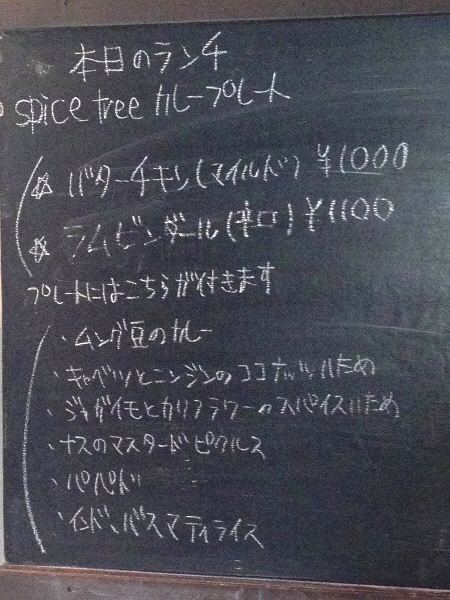 本日のランチ
spice tree カレープレート
☆ バターチキン(マイルド) ¥1000
☆ ラムビンダール(辛口) ¥1100
プレートにはこちらが付きます
・ムング豆のカレー
・キャベツとニンジンのココナッツいため
・ジャガイモとカリフラワーのスパイスいため
・ナスのマスタードピクルス
・パパド
・インド、バスマティライス